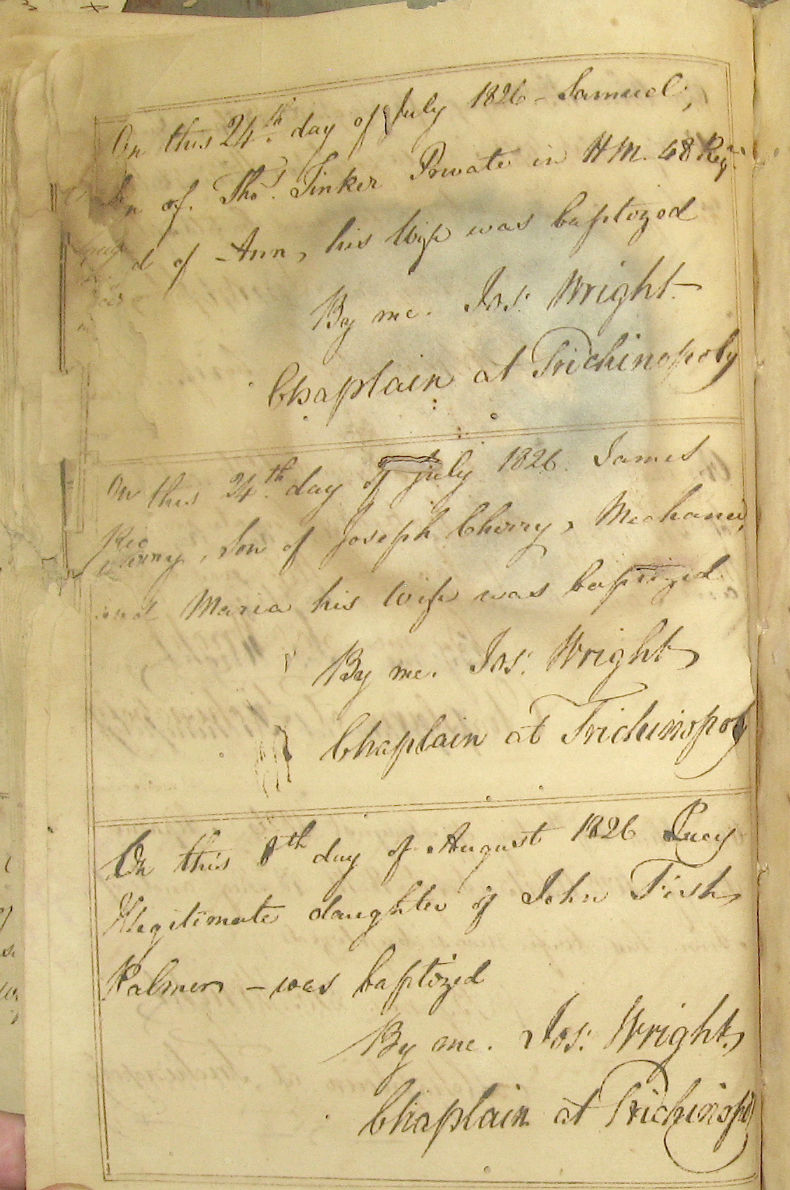 On this 24th day of July 1826 - Samuel,
Son of Thos. Tinker Private in H.M. 48 Regt.
and of Ann, his Wife was baptized
By me. Jos: Wright
Chaplain at Trichinopoly
On this 24th day of July 1826. James
son of Joseph Cherry, Mechanic,
and Maria his Wife was baptized
By me. Jos: Wright
Chaplain at Trichinopoly
On this 8th day of August 1826 Lucy
Illegitimate daughter of John Fish
Palmer - was baptized
By me. Jos: Wright,
Chaplain at Trichinopoly